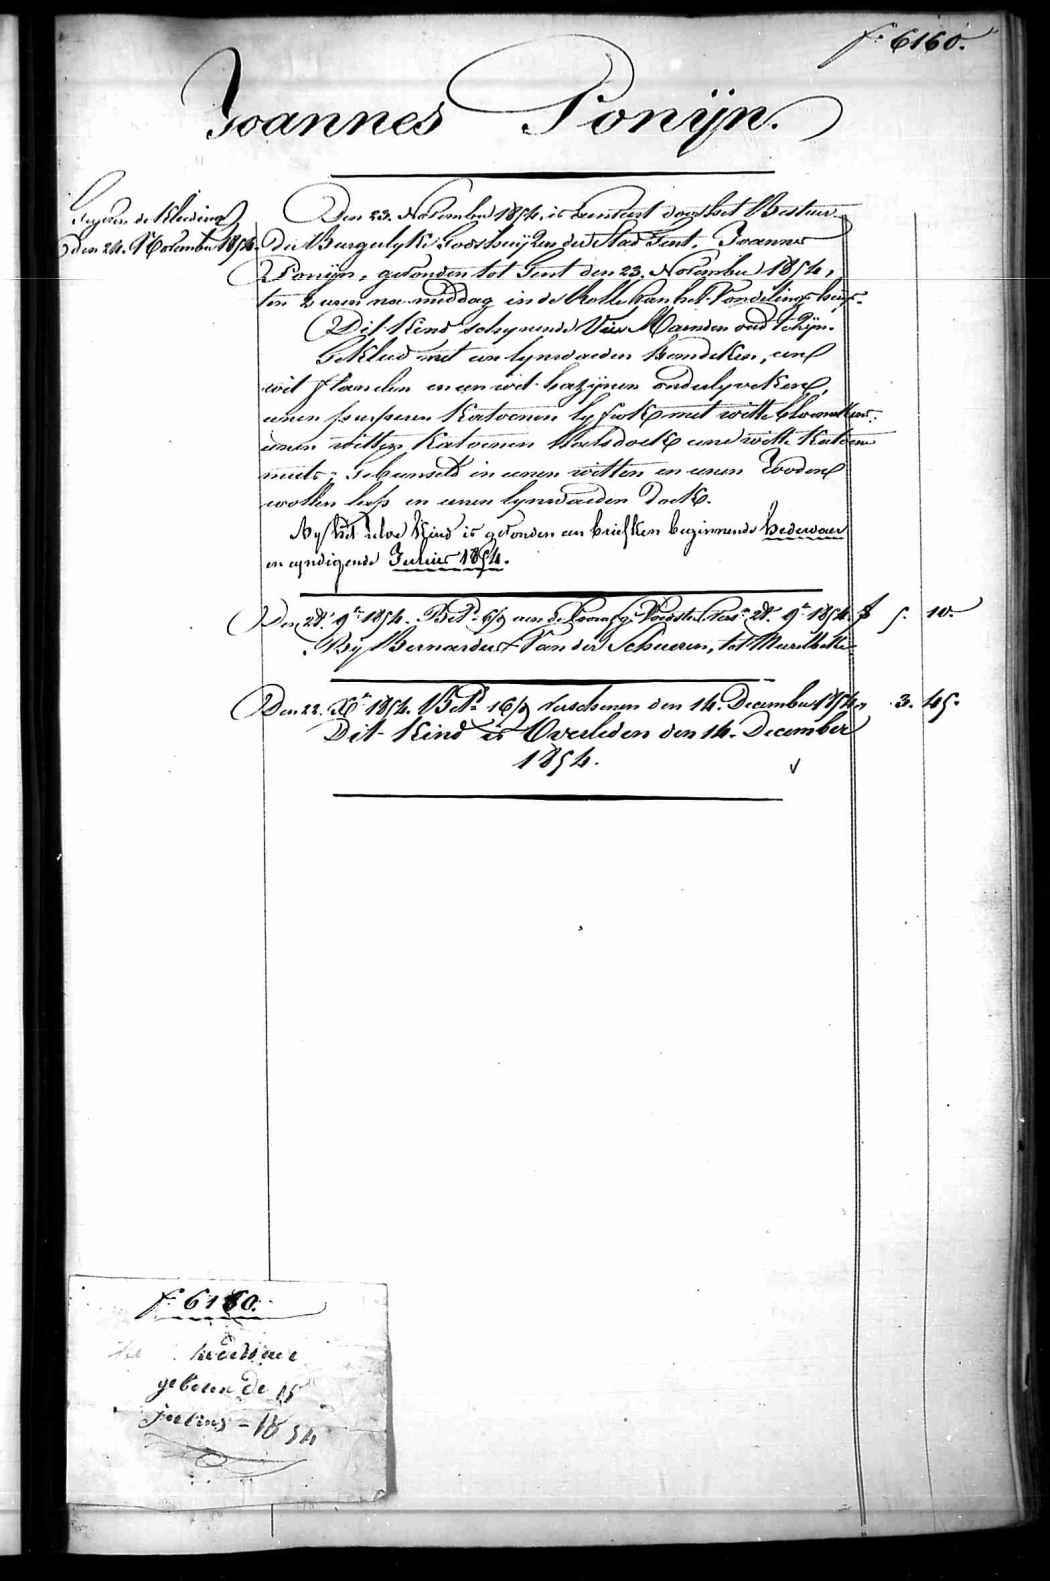 f. 6160.
Joannes Ponijn.
Gegeven de Kleeding
den 24. November 1854.
Den 23. November 1854, is door het Bestuur
der Burgerlyke Godshuyzen der Stad Gent, Joannes
Ponijn, gevonden tot Gent den 23. November 1854,
ten 2 uren na middag in de Rolle van het Vondelings huys.
Dit Kind schynende Vier Maenden oud Schijn.
Gekleed met een lynwaeden hemdeken, een
wit flanelen en een wit bazijnen onderlyveken,
eenen purperen Katoenen lyfrok met witte bloemekens,
eenen witten Katoenen Halsdoek eene witte Katoene
muts, gebunseld in eenen witten en eenen Rooden
wollen lap en eenen lynwaeden Doek.
By het zelve Kind is gevonden een briefken beginnende hedewaer
en eyndigende Julius 1854.
Den 28. 9.re 1854. Bet.d 6/9 aen de Voedster 28. 9.re 1854. f 5. 10.
By Bernardus Van der Schueren, tot Meirelbeke
Den 22. X.re 1854. Bet.d 16/9 verschenen den 14. December 1854. " 3. 45.
Dit Kind is Overleden den 14. December
1854.
f. 6160.
geboren de 15
Julius - 1854